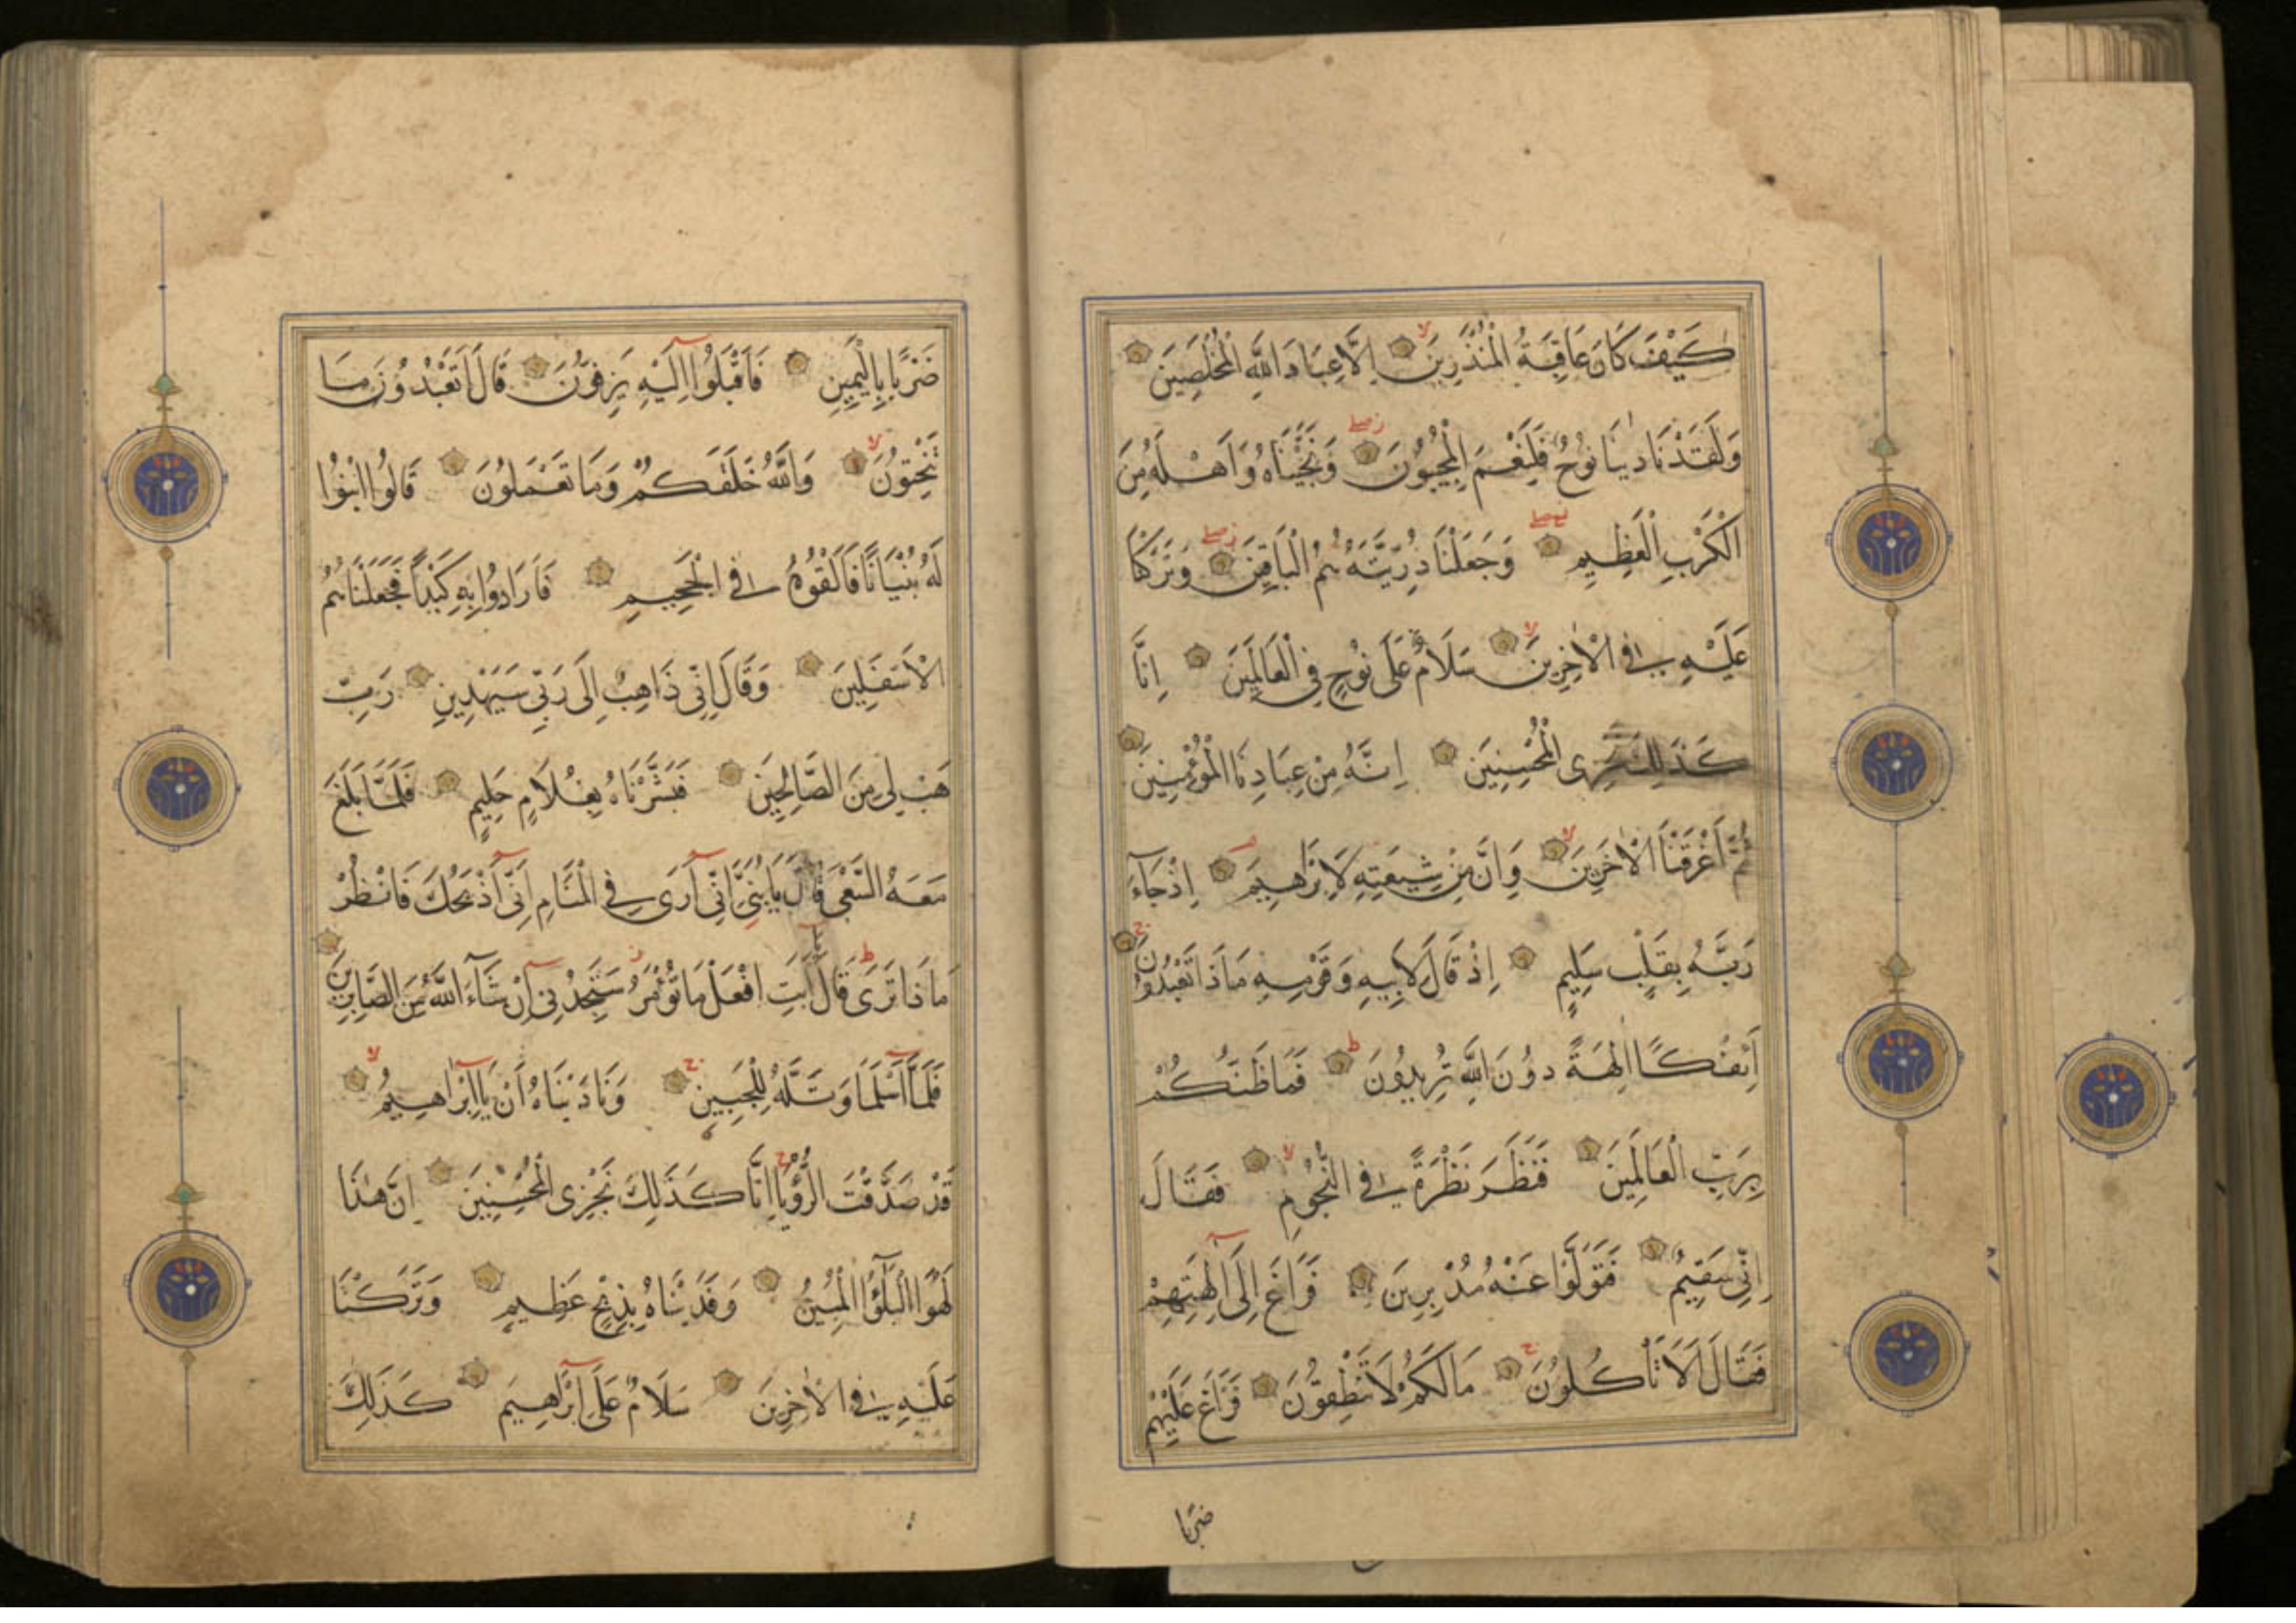 كَيْفَ كَانَ عَاقِبَةُ الْمُنْذَرِينَ لا اِلَّا عِبَادَ اللّٰهِ الْمُخْلَصِينَ
وَلَقَدْ نَادٰينَا نُوحٌ فَلَنِعْمَ الْمُجِيبُونَ وَنَجَّيْنَاهُ وَاَهْلَهُ مِنَ
الْكَرْبِ الْعَظِيمِ وَجَعَلْنَا ذُرِّيَّتَهُ هُمُ الْبَاقِينَ وَتَرَكْنَا
عَلَيْهِ فِي الْاٰخِرِينَ لا سَلَامٌ عَلَى نُوحٍ فِي الْعَالَمِينَ اِنَّا
كَذَلِكَ نَجْزِى الْمُحْسِنِينَ اِنَّهُ مِنْ عِبَادِنَا الْمُؤْمِنِينَ
ثُمَّ اَغْرَقْنَا الْاٰخَرِينَ لا وَاِنَّ مِنْ شِيعَتِهِ لَاِبْرٰهِيمَ اِذْ جَآءَ
رَبَّهُ بِقَلْبٍ سَلِيمٍ اِذْ قَالَ لِاَبِيهِ وَقَوْمِهِ مَاذَا تَعْبُدُونَ ج
اَئِفْكًا اٰلِهَةً دُونَ اللّٰهِ تُرِيدُونَ ط فَمَا ظَنُّكُمْ
بِرَبِّ الْعَالَمِينَ فَنَظَرَ نَظْرَةً فِي النُّجُومِ لا فَقَالَ
اِنِّي سَقِيمٌ فَتَوَلَّوْا عَنْهُ مُدْبِرِينَ فَرَاغَ اِلَى اٰلِهَتِهِمْ
فَقَالَ اَلَا تَاْكُلُونَ ج مَالَكُمْ لَا تَنْطِقُونَ فَرَاغَ عَلَيْهِمْ
ضَرْبًا
ضَرْبًا بِالْيَمِينِ فَاَقْبَلُوا اِلَيْهِ يَزِفُّونَ قَالَ اَتَعْبُدُونَ مَا
تَنْحِتُونَ لا وَاللّٰهُ خَلَقَكُمْ وَمَا تَعْمَلُونَ قَالُوا ابْنُوا
لَهُ بُنْيَانًا فَاَلْقُوهُ فِي الْجَحِيمِ فَاَرَادُوا بِهِ كَيْدًا فَجَعَلْنَاهُمُ
الْاَسْفَلِينَ وَقَالَ اِنِّي ذَاهِبٌ اِلَى رَبِّي سَيَهْدِينِ رَبِّ
هَبْ لِي مِنَ الصَّالِحِينَ فَبَشَّرْنَاهُ بِغُلَامٍ حَلِيمٍ فَلَمَّا بَلَغَ
مَعَهُ السَّعْيَ قَالَ يَا بُنَيَّ اِنِّي اَرَى فِي الْمَنَامِ اَنِّي اَذْبَحُكَ فَانْظُرْ
مَاذَا تَرَى ط قَالَ يَا اَبَتِ افْعَلْ مَا تُؤْمَرُ ز سَتَجِدُنِي اِنْ شَآءَ اللّٰهُ مِنَ الصَّابِرِينَ
فَلَمَّا اَسْلَمَا وَتَلَّهُ لِلْجَبِينِ ج وَنَادَيْنَاهُ اَنْ يَا اِبْرٰاهِيمُ لا
قَدْ صَدَّقْتَ الرُّؤْيَا ج اِنَّا كَذَلِكَ نَجْزِى الْمُحْسِنِينَ اِنَّ هٰذَا
لَهُوَ الْبَلٰٓؤُا الْمُبِينُ وَفَدَيْنَاهُ بِذِبْحٍ عَظِيمٍ وَتَرَكْنَا
عَلَيْهِ فِي الْاٰخِرِينَ سَلَامٌ عَلَى اِبْرٰهِيمَ كَذَلِكَ